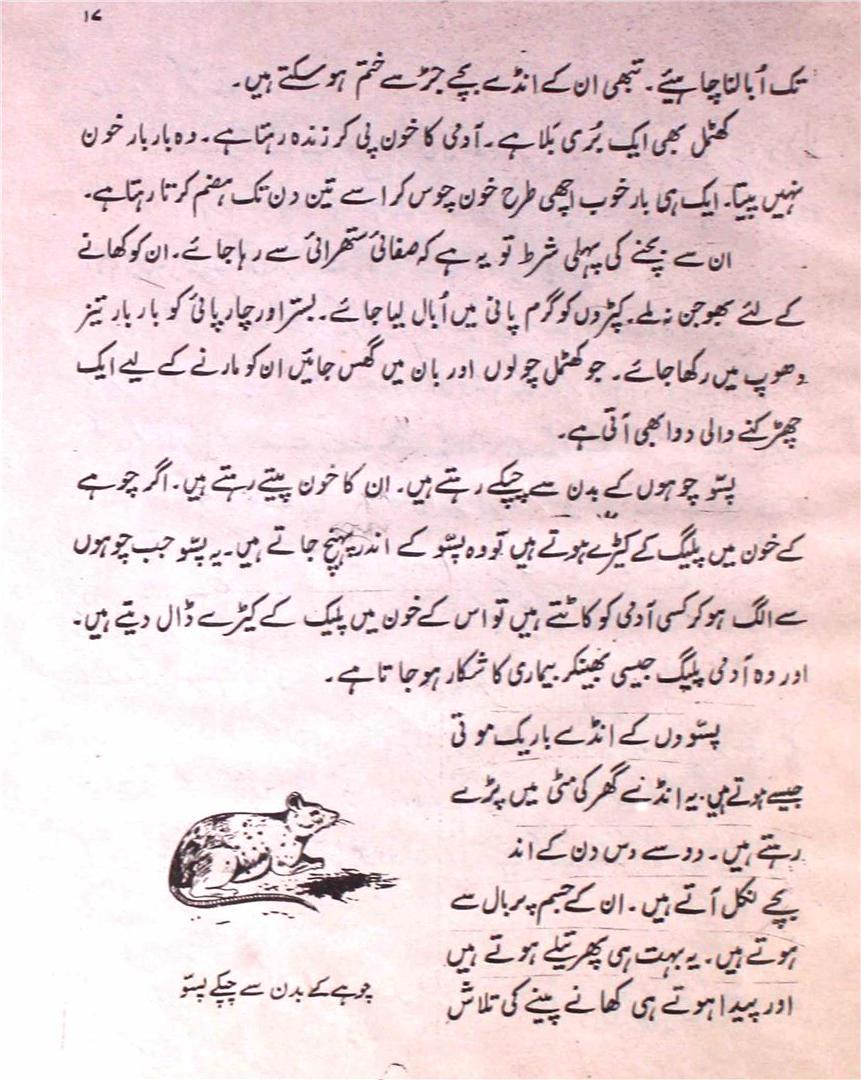 ۱۷
تک اُبالنا چاہیئے۔ تبھی ان کے انڈے بچے جڑ سے ختم ہو سکتے ہیں۔
کھٹمل بھی ایک بُری بَلا ہے۔ آدمی کا خون پی کر زندہ رہتا ہے۔ وہ بار بار خون
نہیں پیتا۔ ایک ہی بار خوب اچھی طرح خون چوس کر اسے تین دن تک ہضم کرتا رہتا ہے۔
ان سے بچنے کی پہلی شرط تو یہ ہے کہ صفائی ستھرائی سے رہا جائے۔ ان کو کھانے
کے لئے بھوجن نہ ملے۔ کپڑوں کو گرم پانی میں اُبال لیا جائے۔ بستر اور چارپائی کو بار بار تیز
دھوپ میں رکھا جائے۔ جو کھٹمل چولوں اور بان میں گھس جائیں ان کو مارنے کے لیے ایک
چھڑکنے والی دوا بھی آتی ہے۔
پسّو چوہوں کے بدن سے چپکے رہتے ہیں۔ ان کا خون پیتے رہتے ہیں۔ اگر چوہے
کے خون میں پلیگ کے کیڑے ہوتے ہیں تو وہ پسّو کے اندر پہنچ جاتے ہیں۔ یہ پسّو جب چوہوں
سے الگ ہو کر کسی آدمی کو کاٹتے ہیں تو اس کے خون میں پلیگ کے کیڑے ڈال دیتے ہیں۔
اور وہ آدمی پلیگ جیسی بھینکر بیماری کا شکار ہو جاتا ہے۔
پسّووں کے انڈے باریک موتی
جیسے ہوتے ہیں۔ یہ انڈے گھر کی مٹی میں پڑے
رہتے ہیں۔ دو سے دس دن کے اند
بچے نکل آتے ہیں۔ ان کے جسم پر بال سے
ہوتے ہیں۔ یہ بہت ہی پھرتیلے ہوتے ہیں
اور پیدا ہوتے ہی کھانے پینے کی تلاش
چوہے کے بدن سے چپکے پسّو